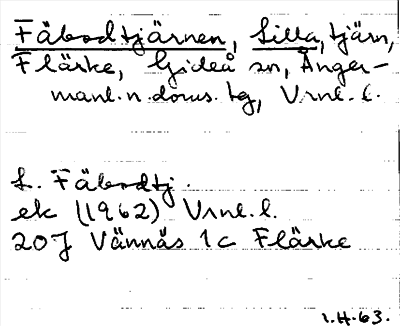 Fäbodtjärnen, Lilla, tjärn,
Flärke, Gideå sn, Ånger-
manl. n. doms. tg, Vrnl. l.
L. Fäbodtj.
ek (1962) Vrnl. l.
20J Vännäs 1c Flärke
I.H.63.